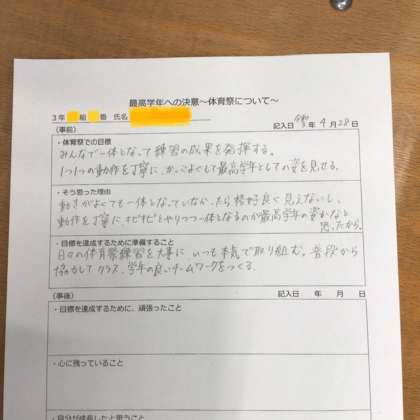 最高学年への決意～体育祭について～
3年 組 番 氏名
記入日 年 4 月 28 日
(事前)
・体育祭での目標
みんなで一体となって練習の成果を発揮する。
1つ1つの動作を丁寧に、かっこよくして最高学年としての姿を見せる。
・そう思った理由
動きがよくても一体となっていなかったら格好良く見えないし、
動作を丁寧に、キビキビとやりつつ一体となるのが最高学年の姿かなと
思ったから。
・目標を達成するために準備すること
日々の体育祭練習を大事に、いつも本気で取り組む。普段から
協力してクラス、学年の良いチームワークをつくる。
(事後)
記入日 年 月 日
・目標を達成するために、頑張ったこと
・心に残っていること
・自分が成長したと思うこと